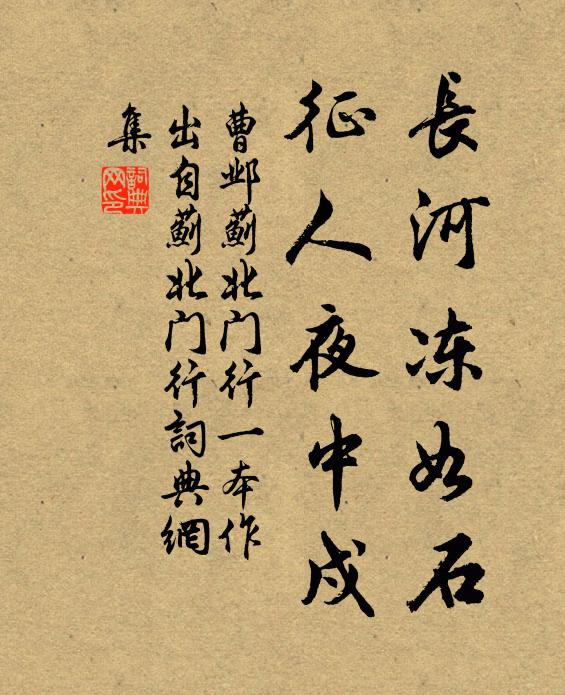 長河冻如石
征人夜中戍
曹邺薊北门行一本作
出自薊北门行詞典網
集
詞典網印